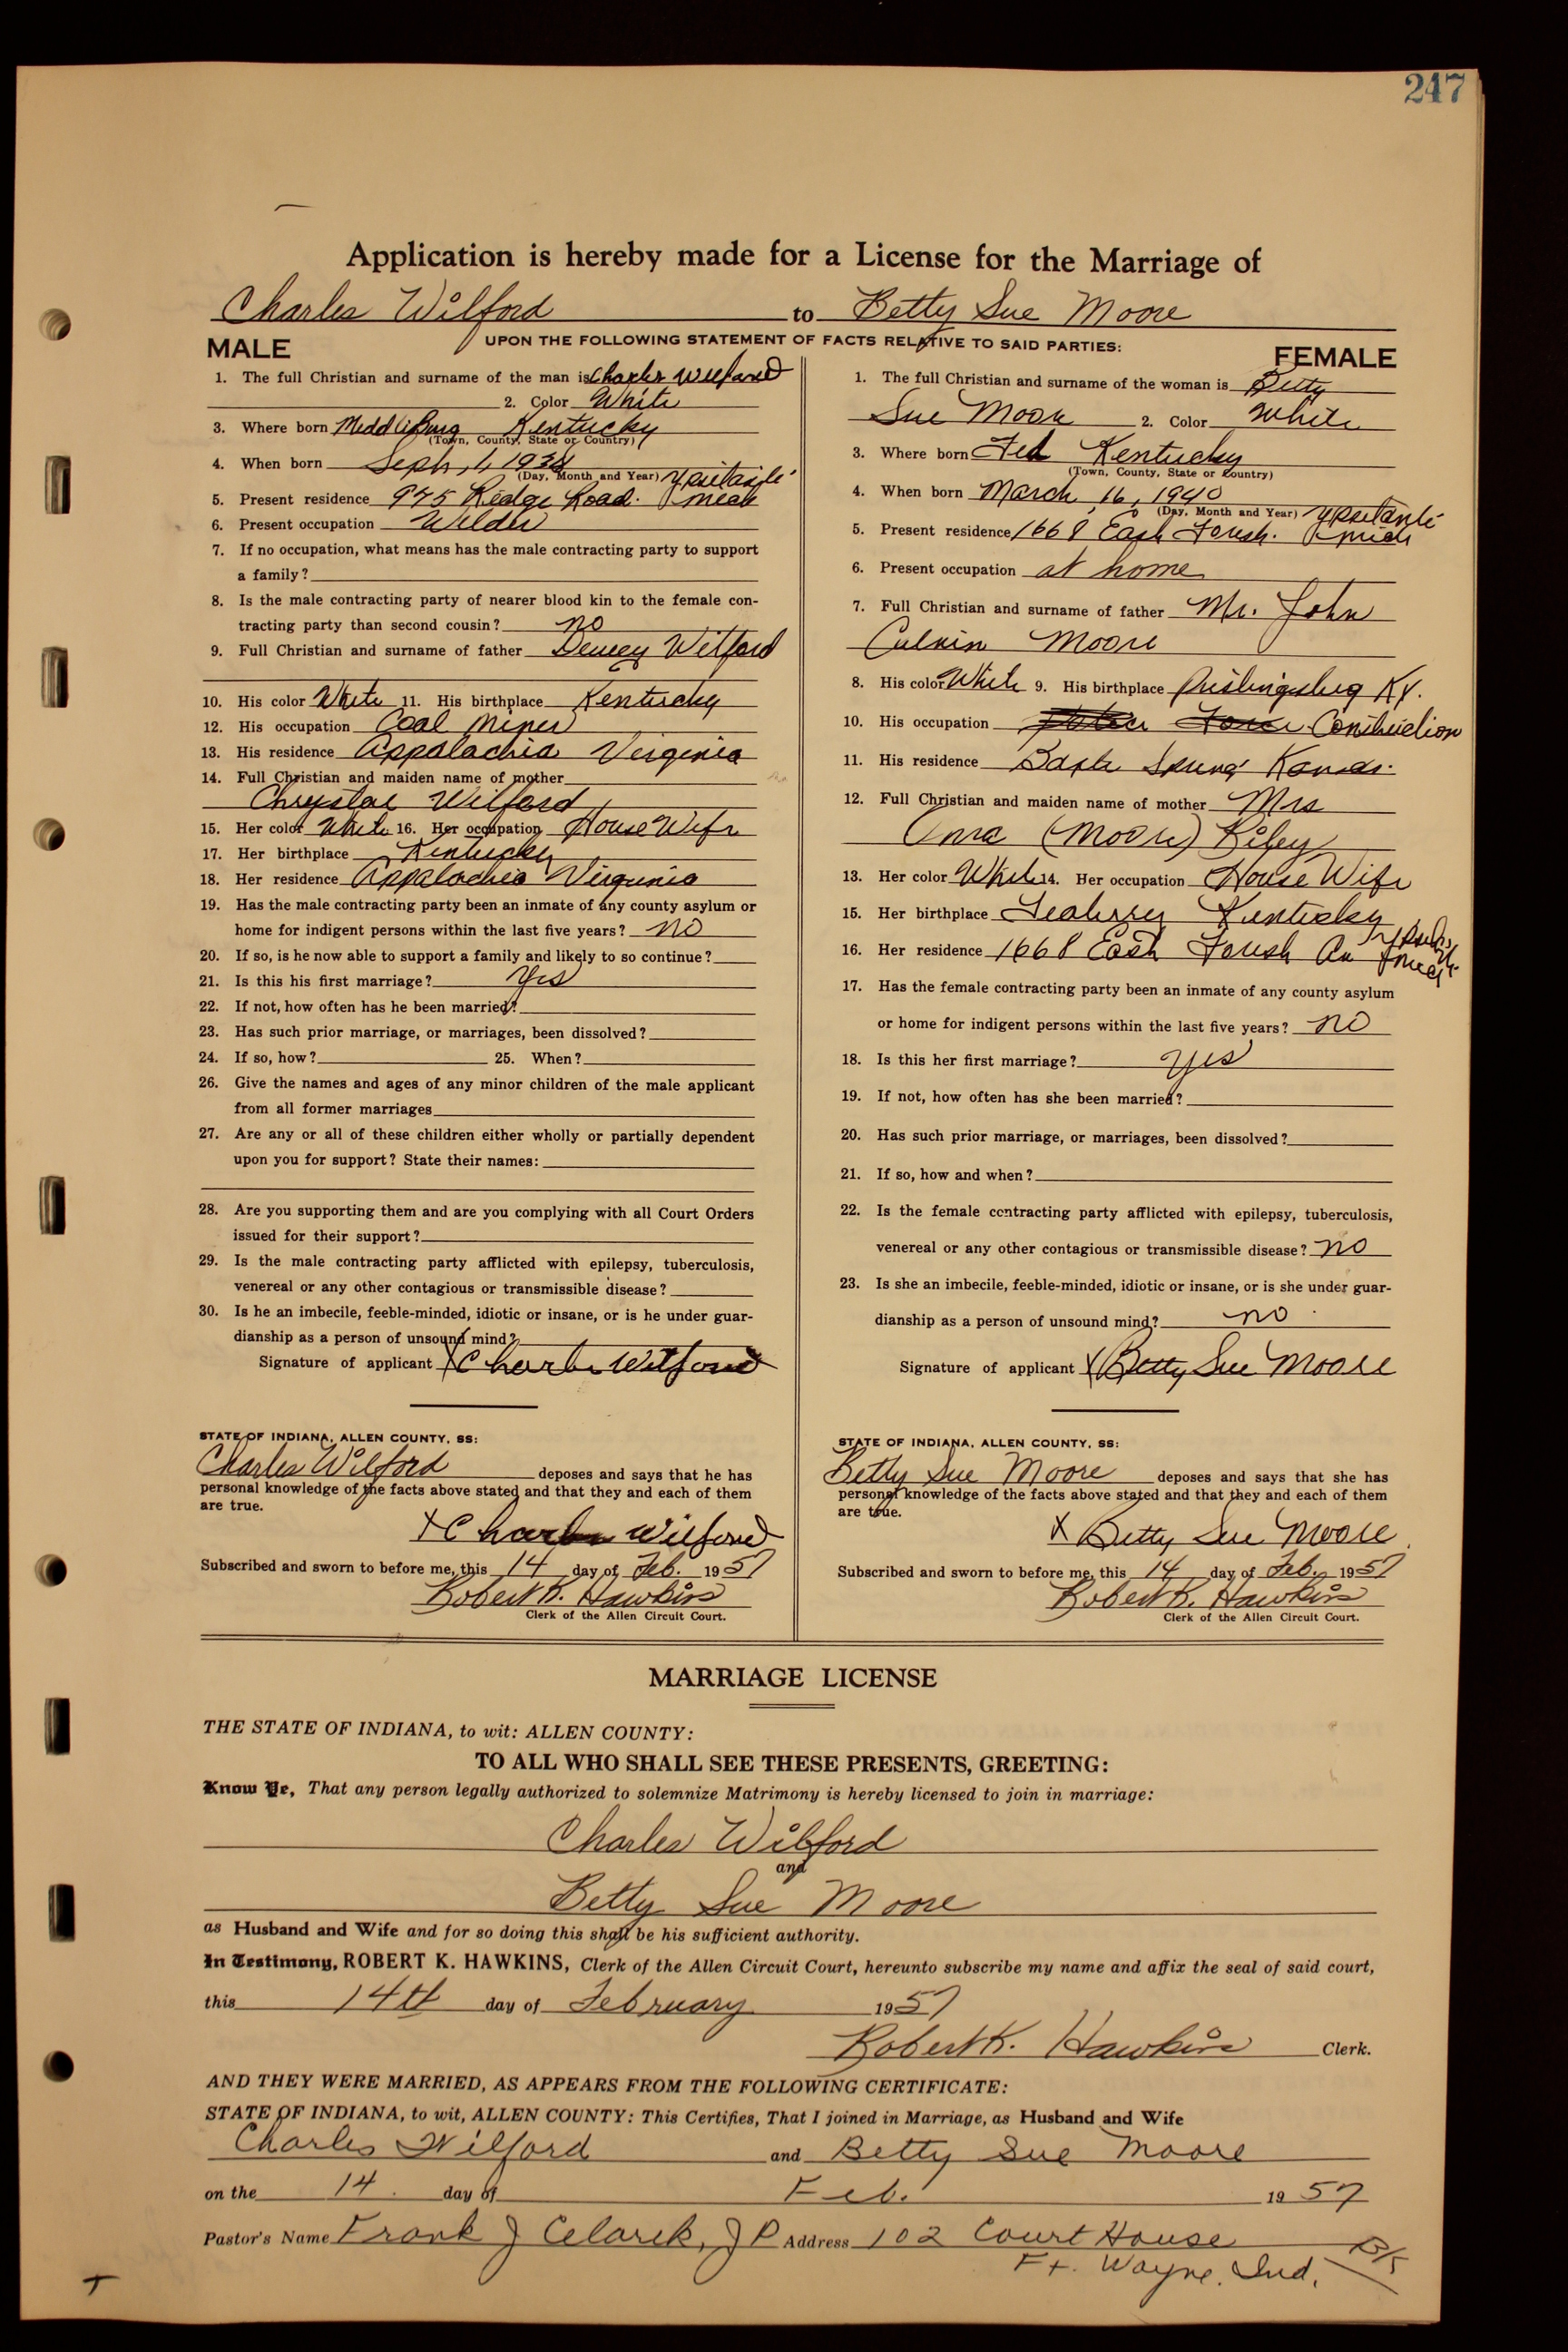 247
Application is hereby made for a License for the Marriage of
Charles Wilford to Betty Sue Moore
UPON THE FOLLOWING STATEMENT OF FACTS RELATIVE TO SAID PARTIES:
MALE
1. The full Christian and surname of the man is Charles Wilford
2. Color White
3. Where born Kentucky
(Town, County, State or Country)
4. When born Sept, 1, 1938
(Day, Month and Year)
5. Present residence 945 Road.
6. Present occupation Wilder
7. If no occupation, what means has the male contracting party to support
a family?
8. Is the male contracting party of nearer blood kin to the female con-
tracting party than second cousin? no
9. Full Christian and surname of father Dewey Wilford
10. His color White 11. His birthplace Kentucky
12. His occupation Coal Miner
13. His residence Appalachia Virginia
14. Full Christian and maiden name of mother
Chrystal Wilford
15. Her color White 16. Her occupation House Wife
17. Her birthplace Kentucky
18. Her residence Appalachia Virginia
19. Has the male contracting party been an inmate of any county asylum or
home for indigent persons within the last five years? no
20. If so, is he now able to support a family and likely to so continue?
21. Is this his first marriage? yes
22. If not, how often has he been married?
23. Has such prior marriage, or marriages, been dissolved?
24. If so, how? 25. When?
26. Give the names and ages of any minor children of the male applicant
from all former marriages
27. Are any or all of these children either wholly or partially dependent
upon you for support? State their names:
28. Are you supporting them and are you complying with all Court Orders
issued for their support?
29. Is the male contracting party afflicted with epilepsy, tuberculosis,
venereal or any other contagious or transmissible disease?
30. Is he an imbecile, feeble-minded, idiotic or insane, or is he under guar-
dianship as a person of unsound mind?
Signature of applicant X Charles Wilford
STATE OF INDIANA, ALLEN COUNTY, SS:
Charles Wilford deposes and says that he has
personal knowledge of the facts above stated and that they and each of them
are true.
X Charles Wilford
Subscribed and sworn to before me, this 14 day of Feb. 1957
Robert K. Hawkins
Clerk of the Allen Circuit Court.
FEMALE
1. The full Christian and surname of the woman is Betty
Sue Moore 2. Color White
3. Where born Kentucky
(Town, County, State or Country)
4. When born March, 16, 1940
(Day, Month and Year)
5. Present residence 1668 East Ypsilanti Mich
6. Present occupation at home
7. Full Christian and surname of father Mr. John
Calvin Moore
8. His color White 9. His birthplace Ky.
10. His occupation Construction
11. His residence Kansas.
12. Full Christian and maiden name of mother Mrs
(Moore) Riley
13. Her color White 14. Her occupation House Wife
15. Her birthplace Kentucky
16. Her residence 1668 East
17. Has the female contracting party been an inmate of any county asylum
or home for indigent persons within the last five years? no
18. Is this her first marriage? yes
19. If not, how often has she been married?
20. Has such prior marriage, or marriages, been dissolved?
21. If so, how and when?
22. Is the female contracting party afflicted with epilepsy, tuberculosis,
venereal or any other contagious or transmissible disease? no
23. Is she an imbecile, feeble-minded, idiotic or insane, or is she under guar-
dianship as a person of unsound mind? no
Signature of applicant X Betty Sue Moore
STATE OF INDIANA, ALLEN COUNTY, SS:
Betty Sue Moore deposes and says that she has
personal knowledge of the facts above stated and that they and each of them
are true.
X Betty Sue Moore
Subscribed and sworn to before me, this 14 day of Feb. 1957
Robert K. Hawkins
Clerk of the Allen Circuit Court.
MARRIAGE LICENSE
THE STATE OF INDIANA, to wit: ALLEN COUNTY:
TO ALL WHO SHALL SEE THESE PRESENTS, GREETING:
Know Ye, That any person legally authorized to solemnize Matrimony is hereby licensed to join in marriage:
Charles Wilford
and
Betty Sue Moore
as Husband and Wife and for so doing this shall be his sufficient authority.
In Testimony, ROBERT K. HAWKINS, Clerk of the Allen Circuit Court, hereunto subscribe my name and affix the seal of said court,
this 14th day of February 1957
Robert K. Hawkins Clerk.
AND THEY WERE MARRIED, AS APPEARS FROM THE FOLLOWING CERTIFICATE:
STATE OF INDIANA, to wit, ALLEN COUNTY: This Certifies, That I joined in Marriage, as Husband and Wife
Charles Wilford and Betty Sue Moore
on the 14. day of Feb. 1957
Pastor's Name Frank J Celarek, J P Address 102 Court House
Ft. Wayne, Ind.